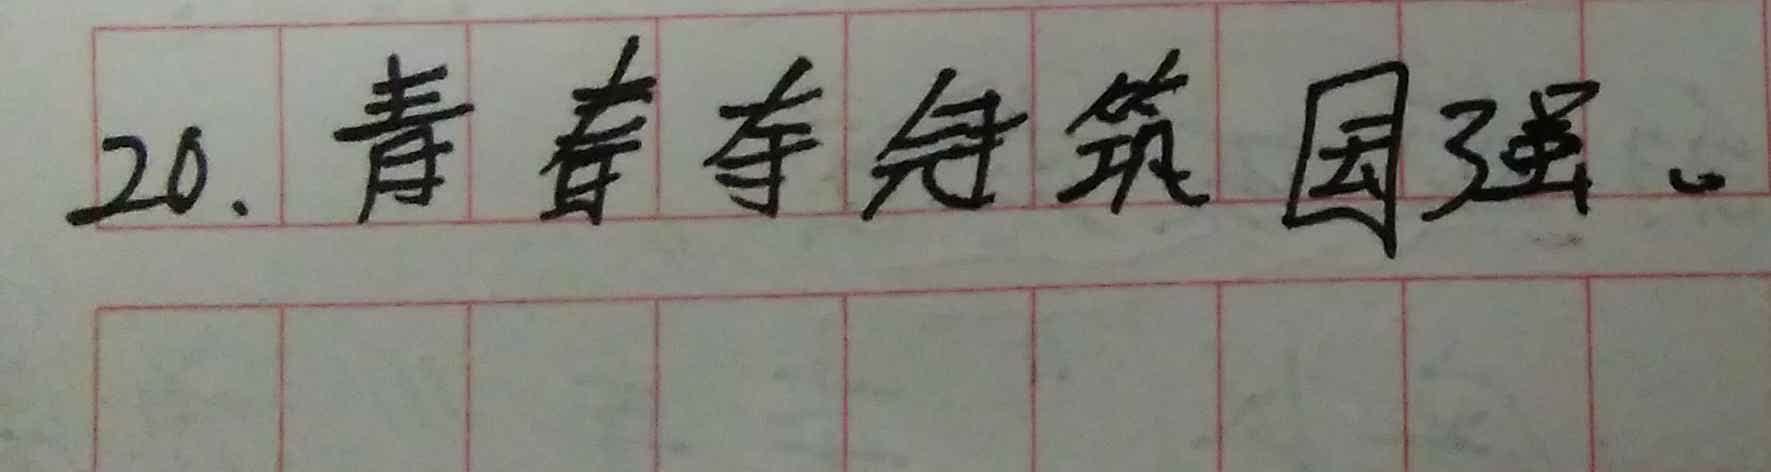 20.青春夺冠筑国强。